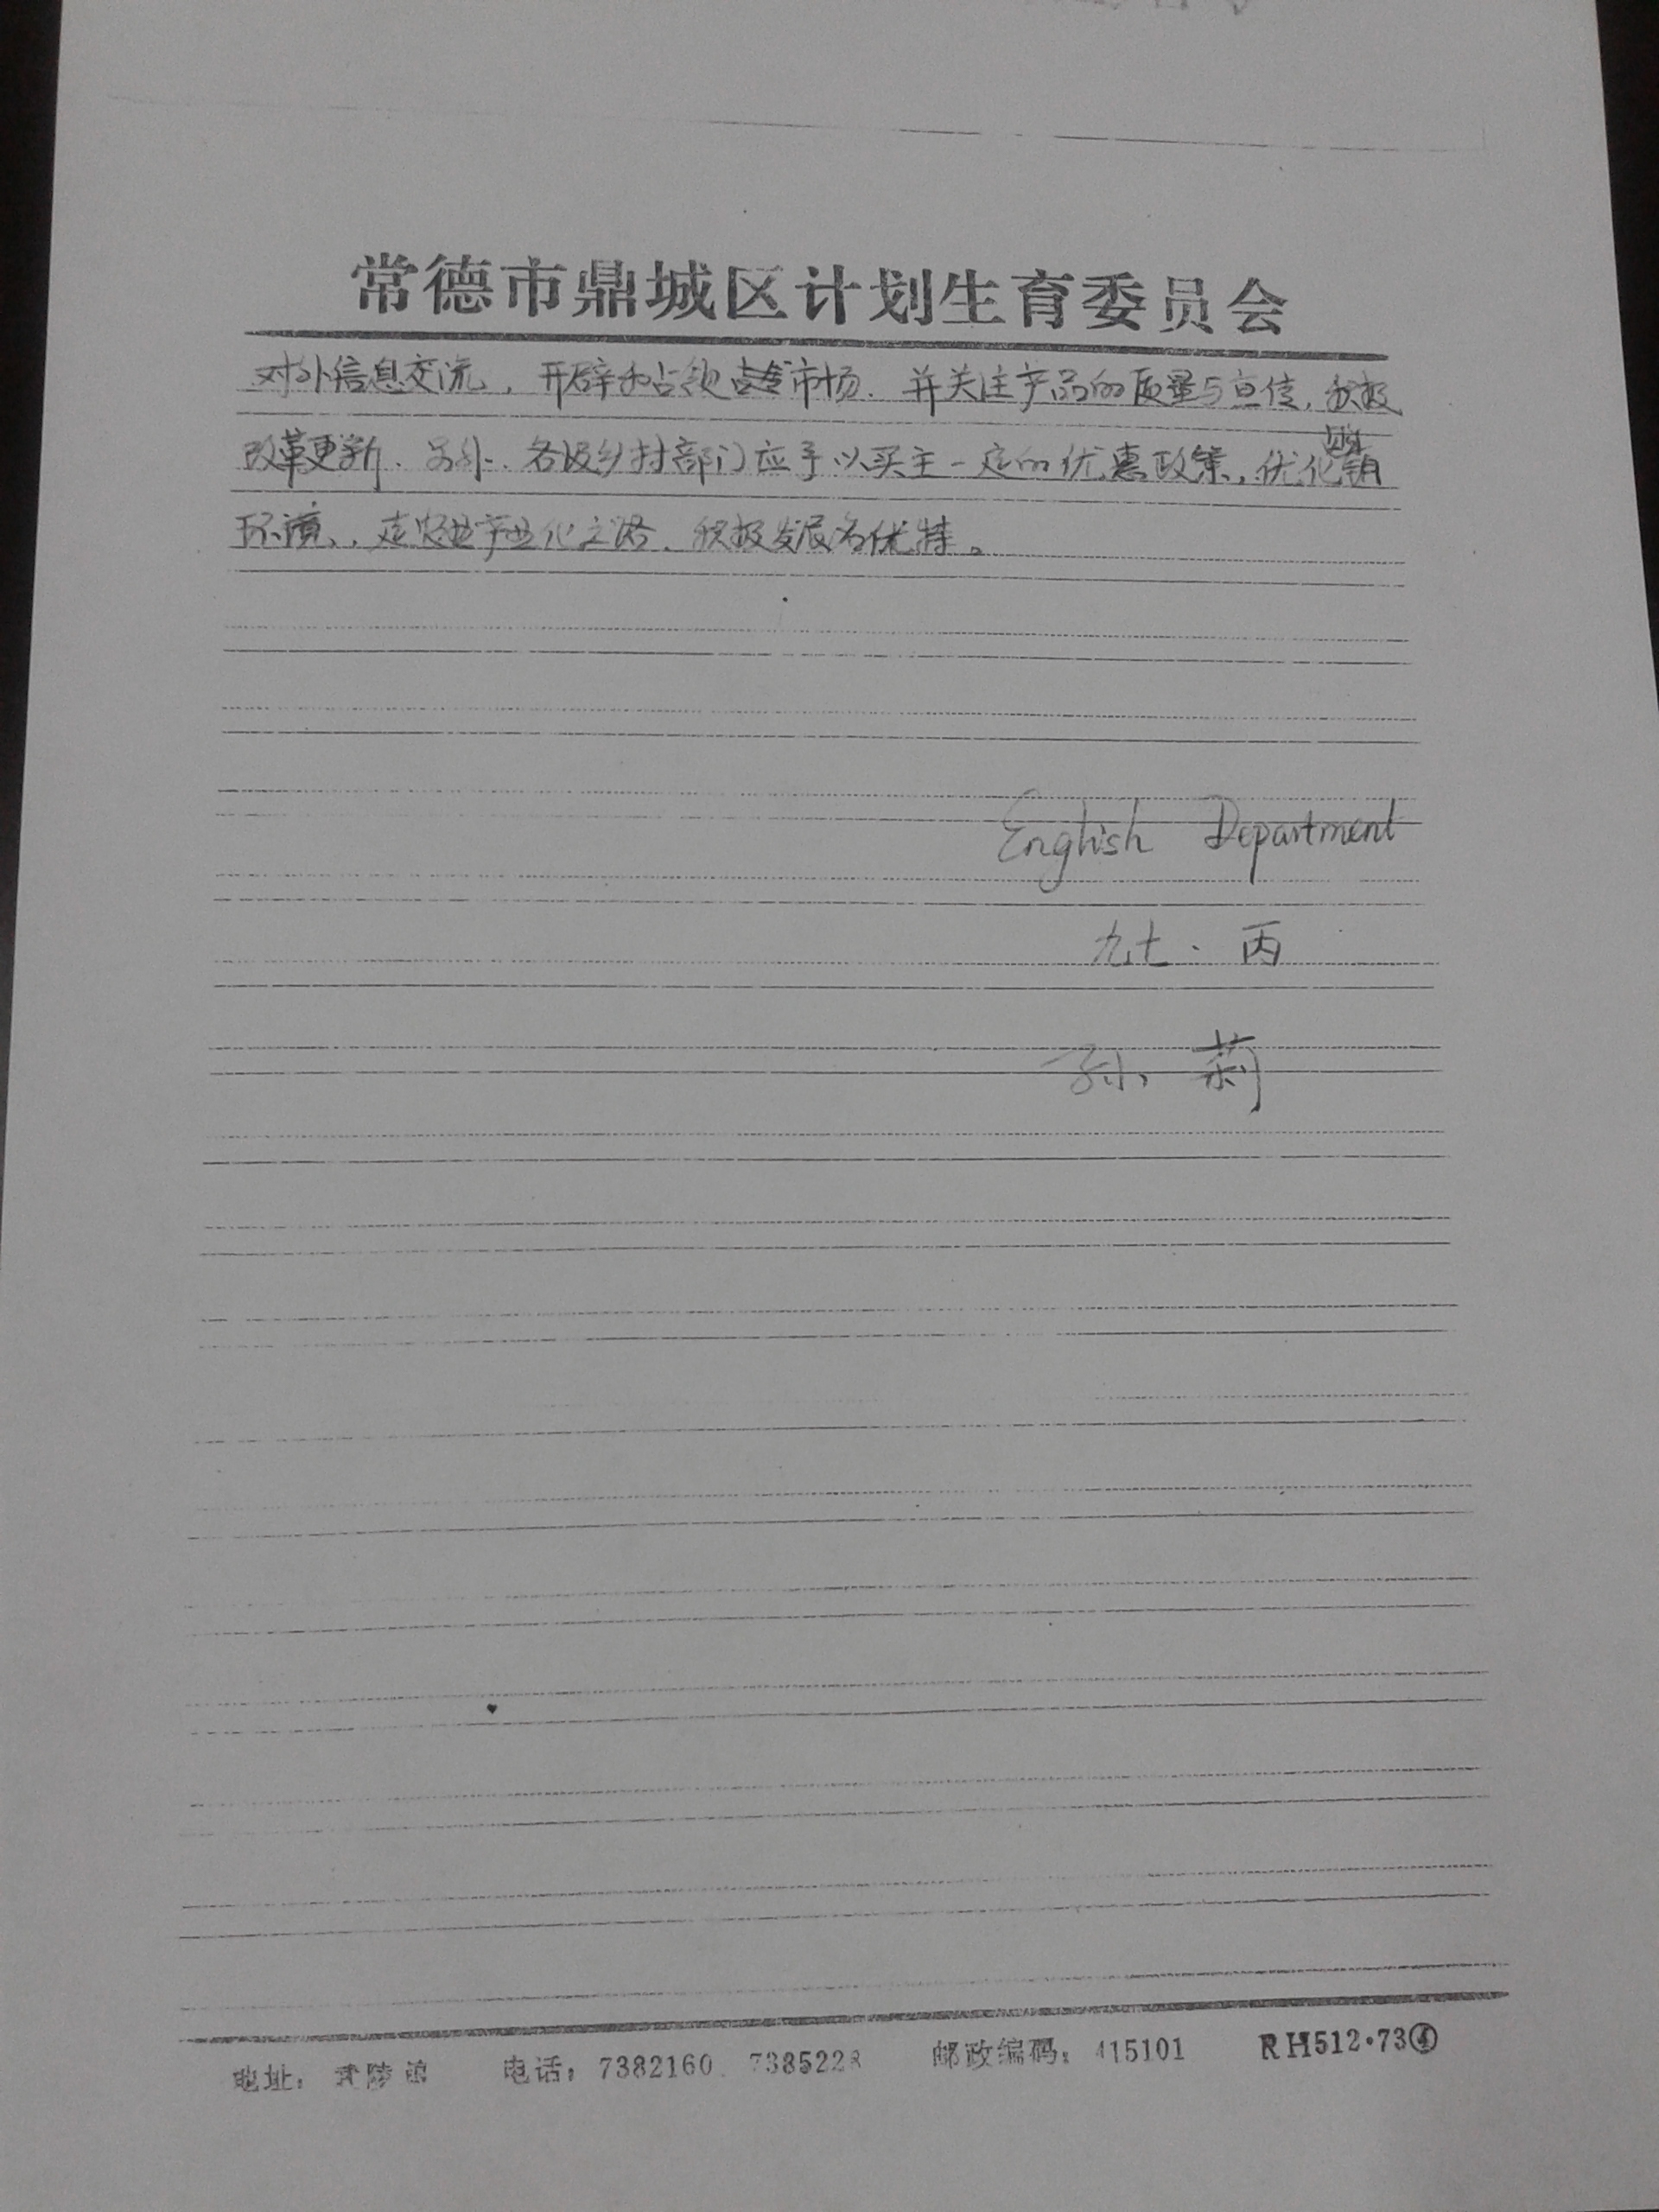 常德市鼎城区计划生育委员会
对外信息交流，开辟和占领市场．并关注产品的质量与宣传，积极
改革更新．另外．各级乡村部门应予以买主一定的优惠政策，优化购销
环境，走农业产业化之路．积极发展名优特。
English Department
九七·丙
孙 莉
地址：武陵镇 电话：7382160 7385228 邮政编码：415101 RH512·73④